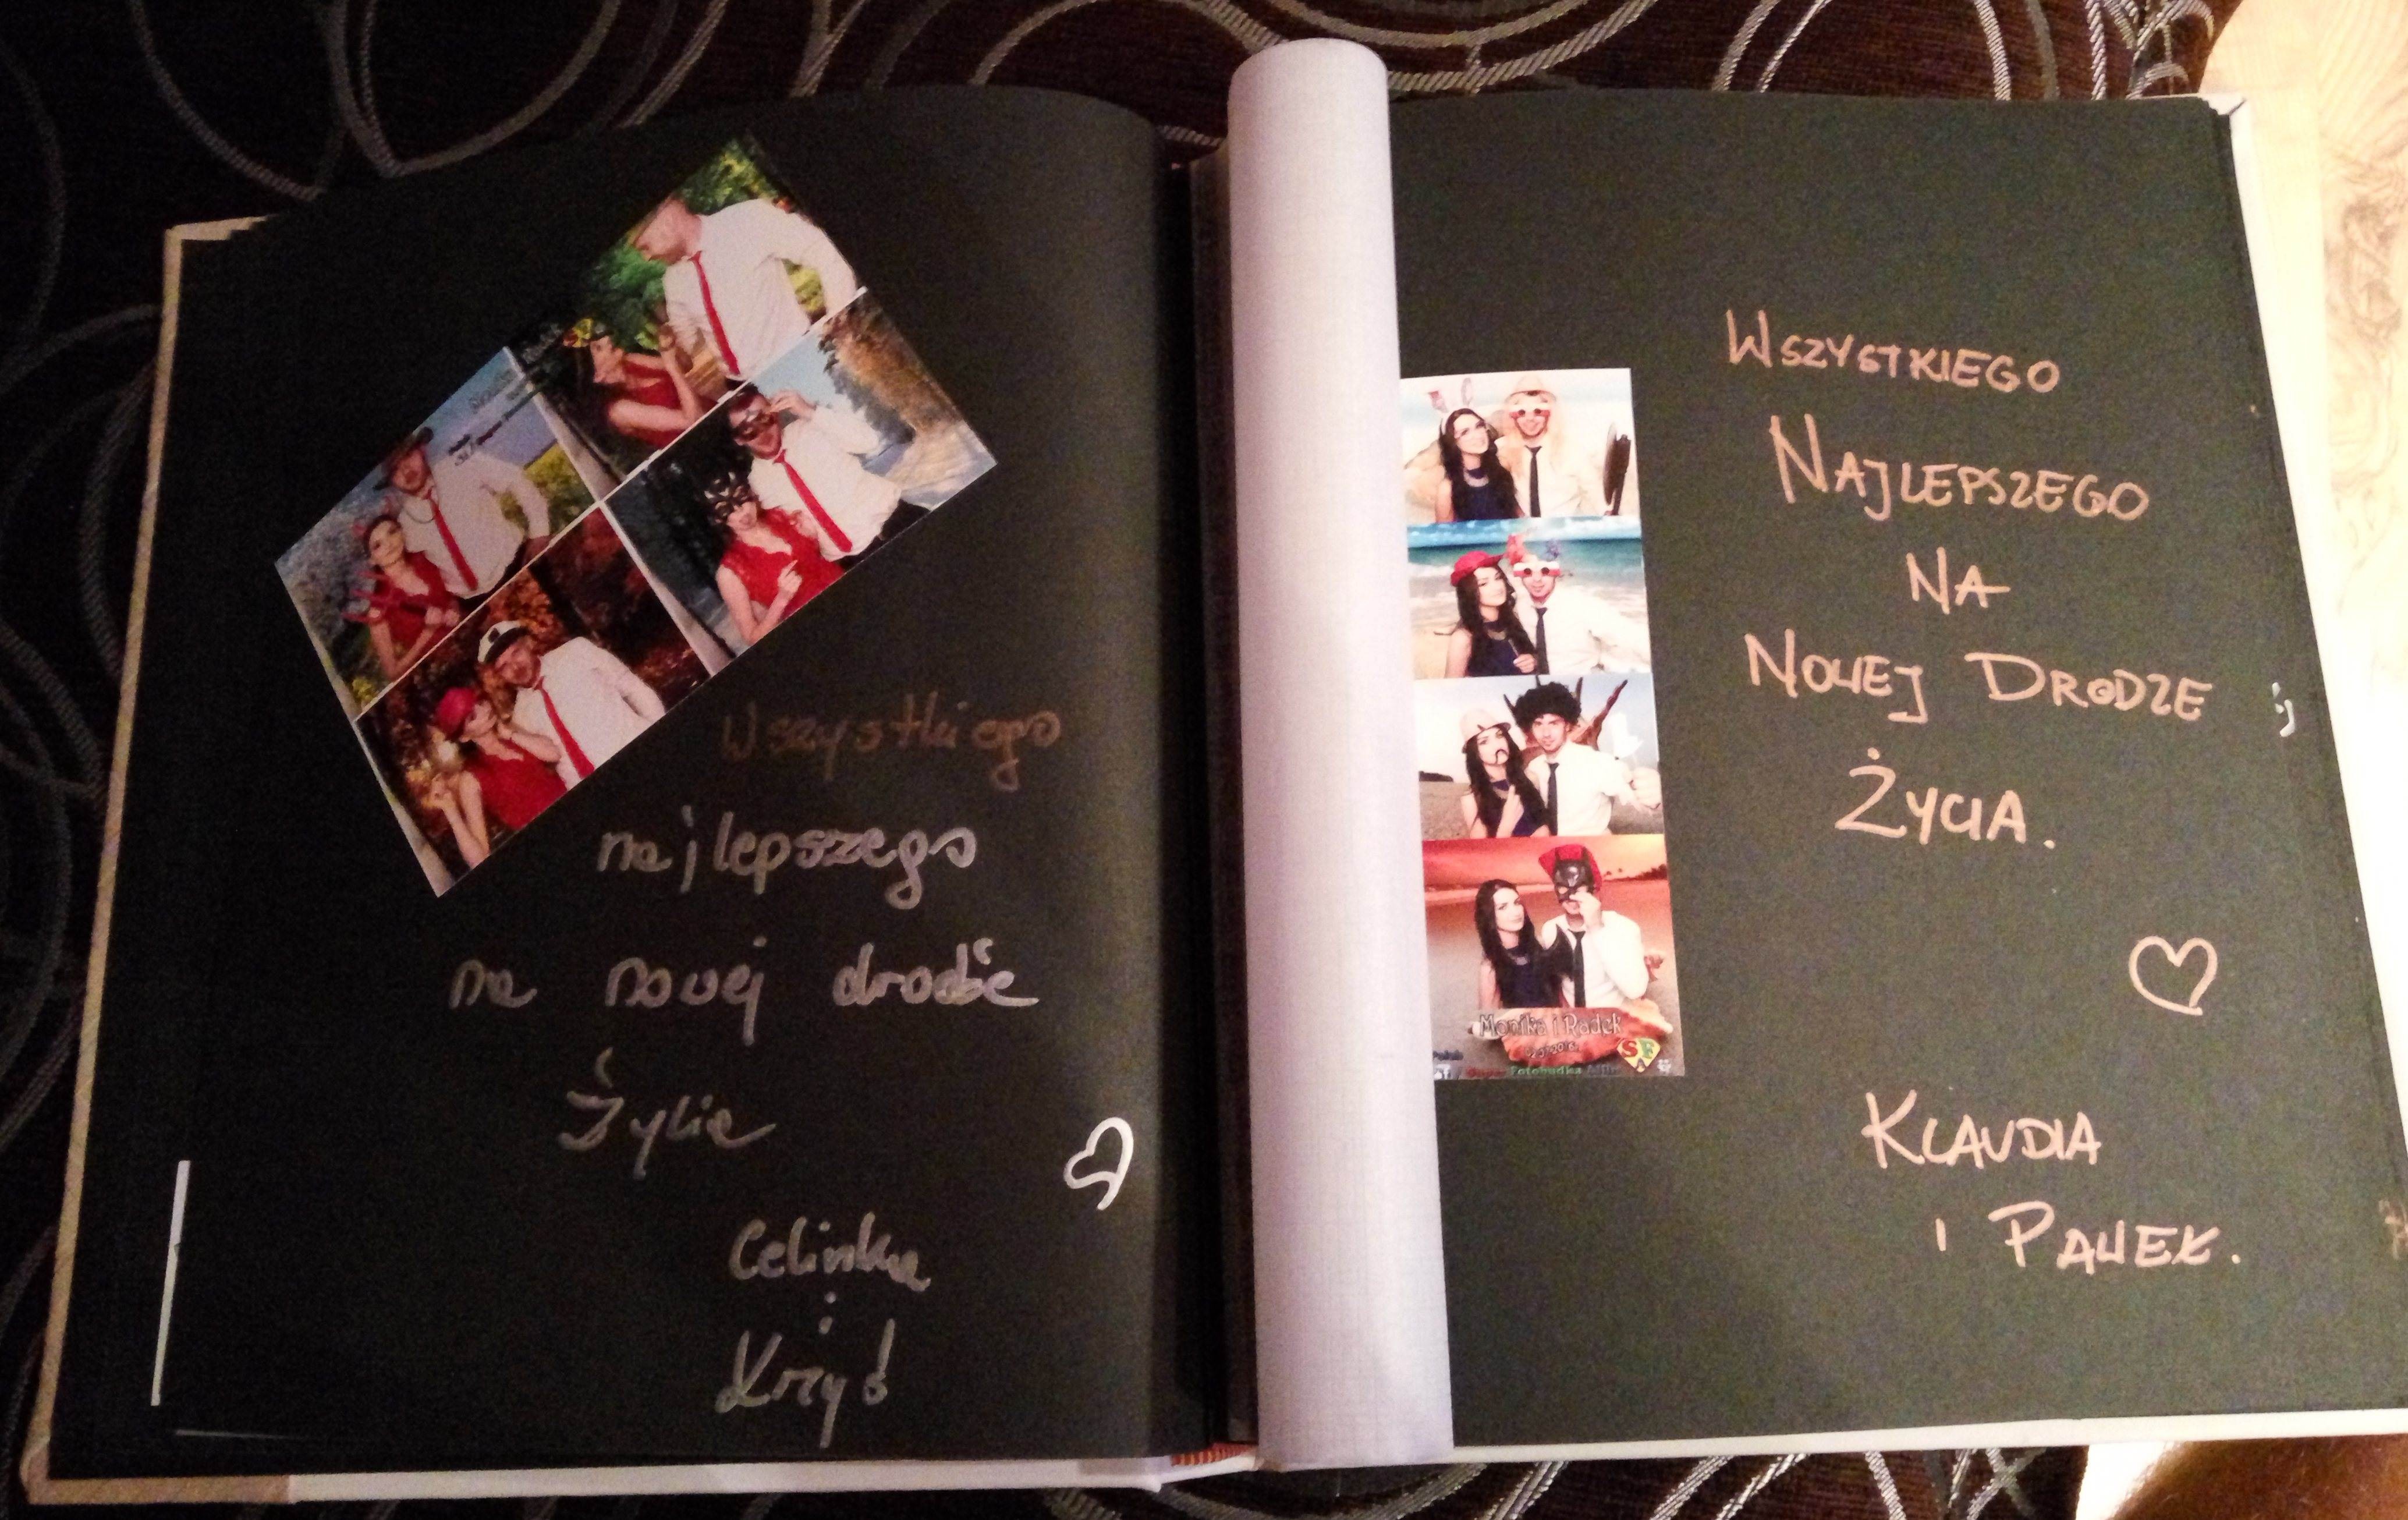 Wszystkiego
najlepszego
na nowej drodze
Życia
Celinka
i
Krzyś
WSZYSTKIEGO
NAJLEPSZEGO
NA
NOWEJ DRODZE
ŻYCIA.
KLAUDIA
I PAWEŁ.
Monika i Radek
Fotobudka
SF